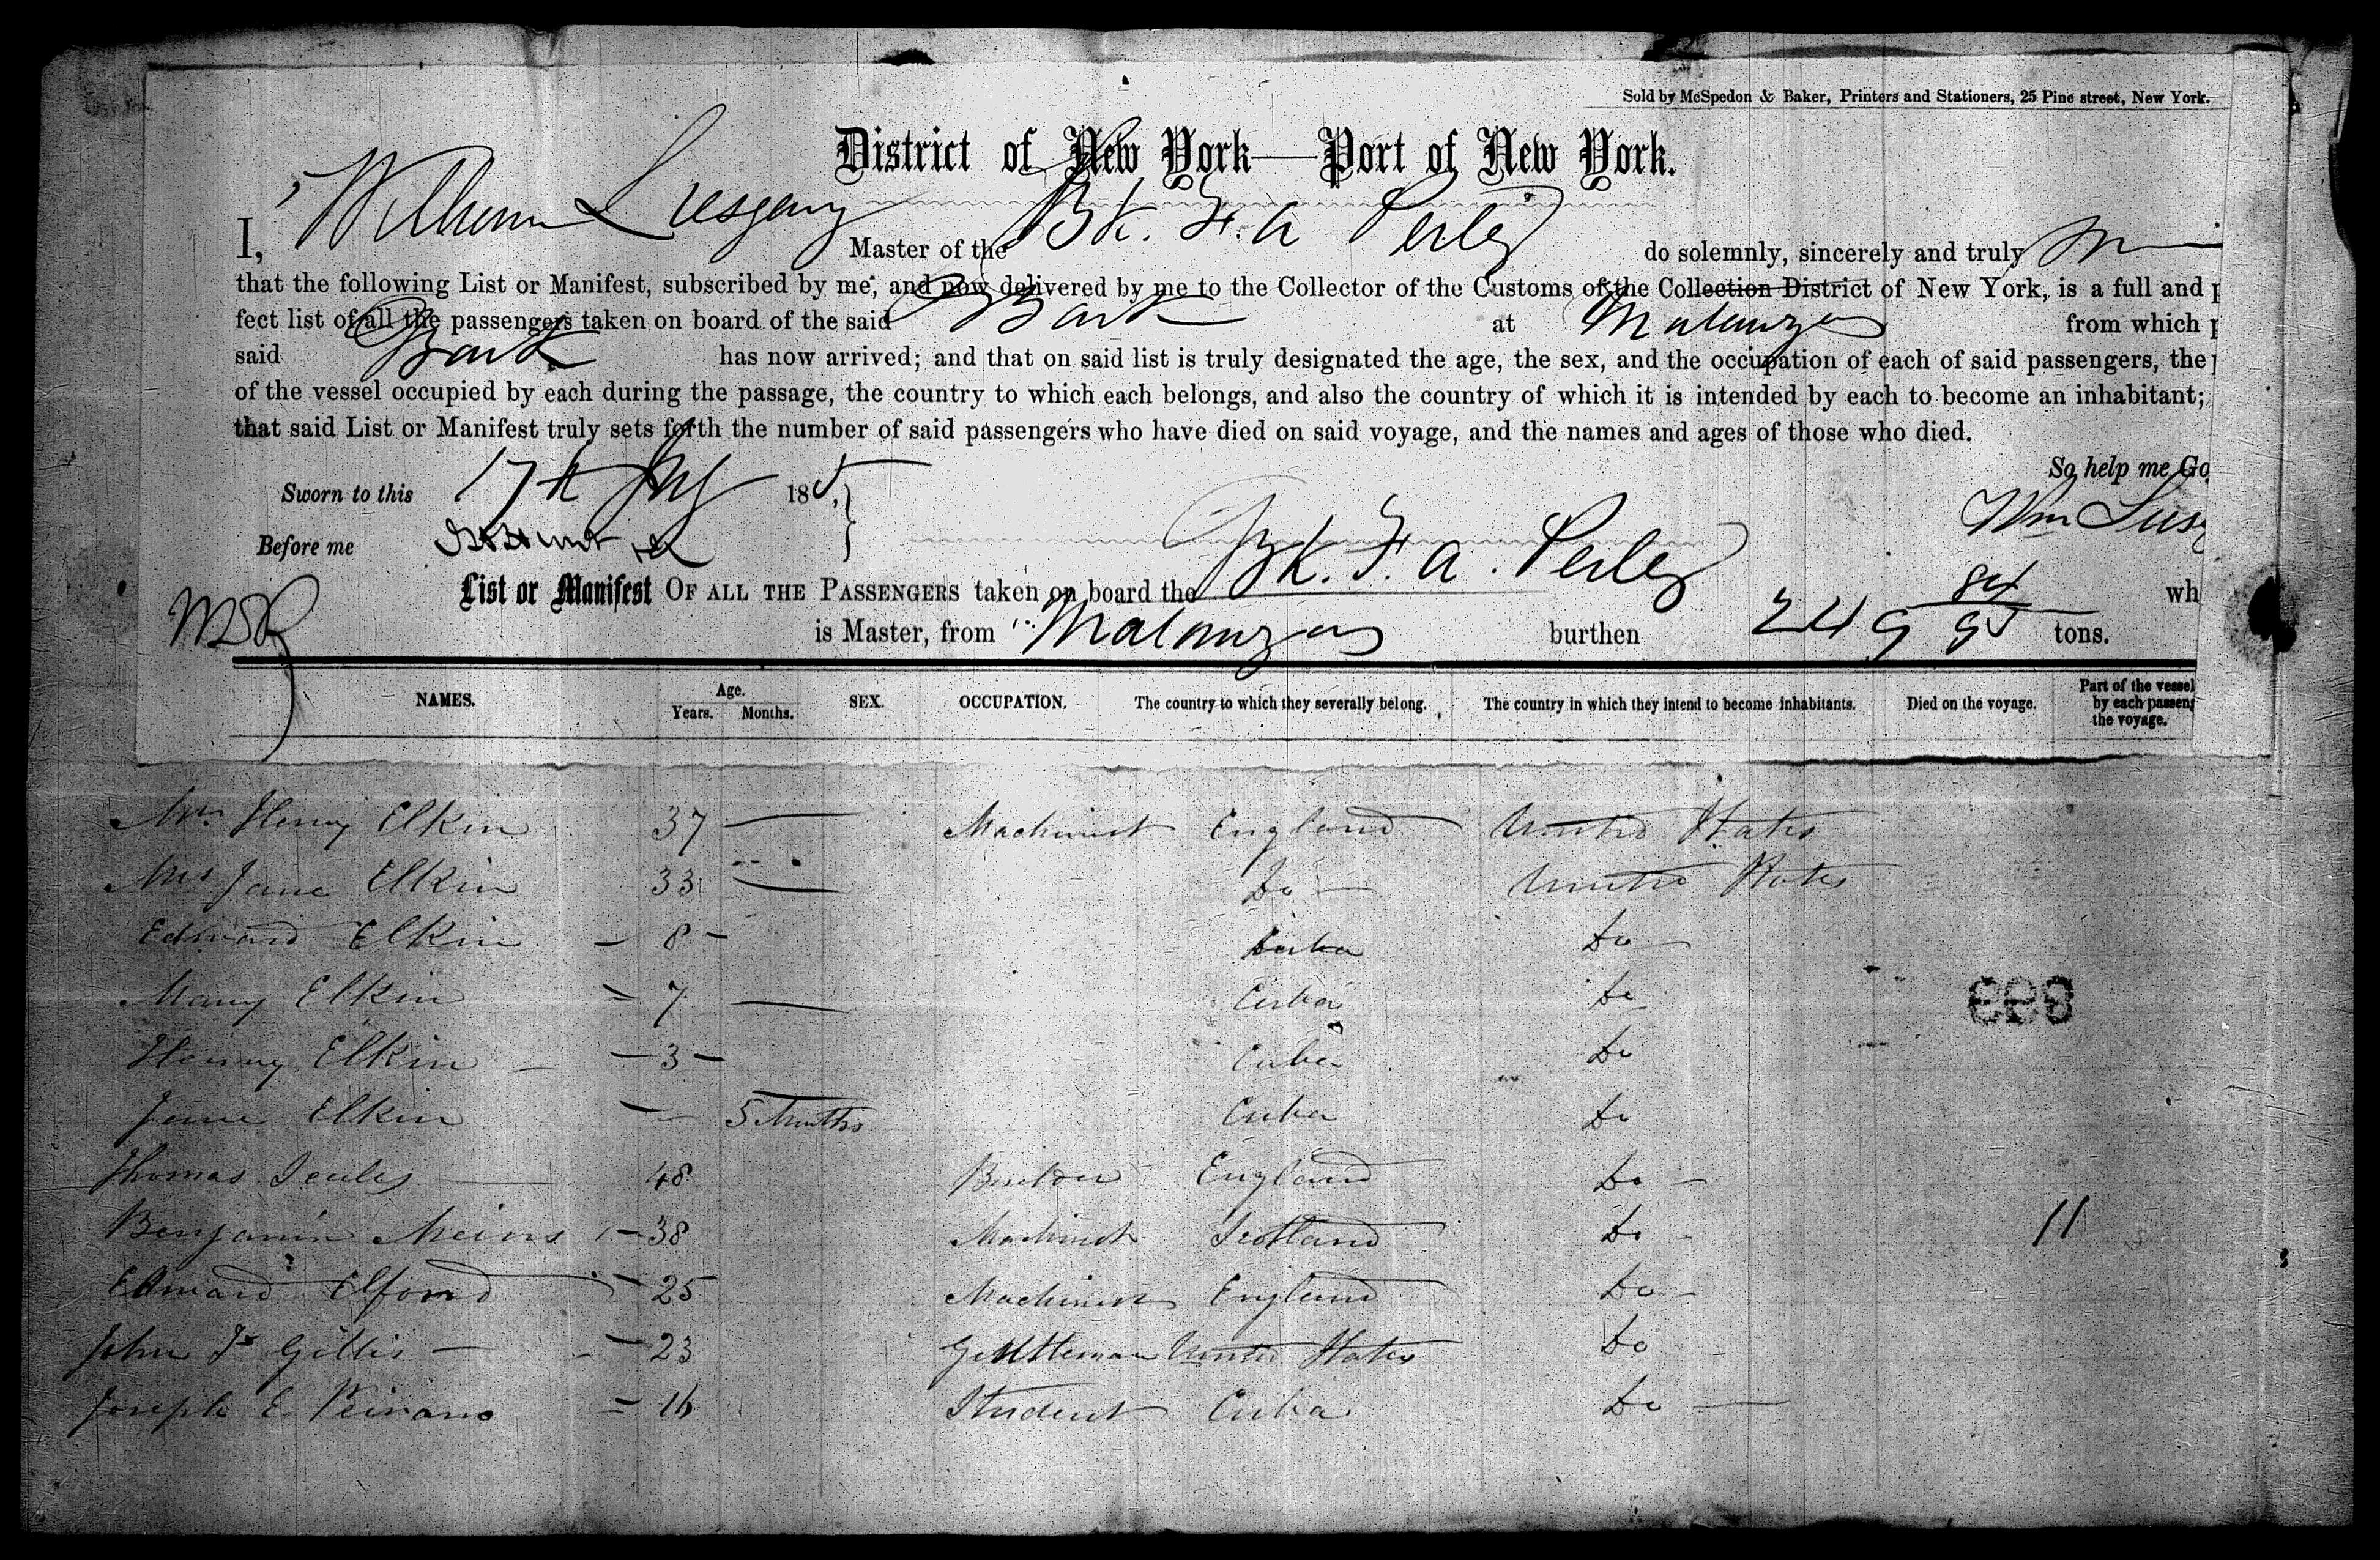 Sold by McSpedon & Baker, Printers and Stationers, 25 Pine street, New York.
District of New York—Port of New York.
I, William Master of the Bk. F. A Perley do solemnly, sincerely and truly
that the following List or Manifest, subscribed by me, and now delivered by me to the Collector of the Customs of the Collection District of New York, is a full and
fect list of all the passengers taken on board of the said Bark at Matanzas from which
said Bark has now arrived; and that on said list is truly designated the age, the sex, and the occupation of each of said passengers, the
of the vessel occupied by each during the passage, the country to which each belongs, and also the country of which it is intended by each to become an inhabitant;
that said List or Manifest truly sets forth the number of said passengers who have died on said voyage, and the names and ages of those who died.
So help me Go
Sworn to this 17th 185
Wm
Before me
List or Manifest OF ALL THE PASSENGERS taken on board the Bk. F. A. Perley wh
is Master, from Matanzas burthen 249 84/95 tons.
NAMES. Age. Years. Months. SEX. OCCUPATION. The country to which they severally belong. The country in which they intend to become inhabitants. Died on the voyage. Part of the vessel by each passen the voyage.
Mr. Henry Elkin 37 Machinist England United States
Mrs Jane Elkin 33 Do United States
Edward Elkin 8 Cuba Do
Mary Elkin 7 Cuba Do
Henry Elkin 3 Cuba Do
Jane Elkin 5 Months Cuba Do
Thomas 48 England Do
Benjamin Meins 38 Machinist Scotland Do
11
Edward Elford 25 Machinist England Do
John F Gillis 23 Gentleman United States Do
Joseph E 16 Student Cuba Do